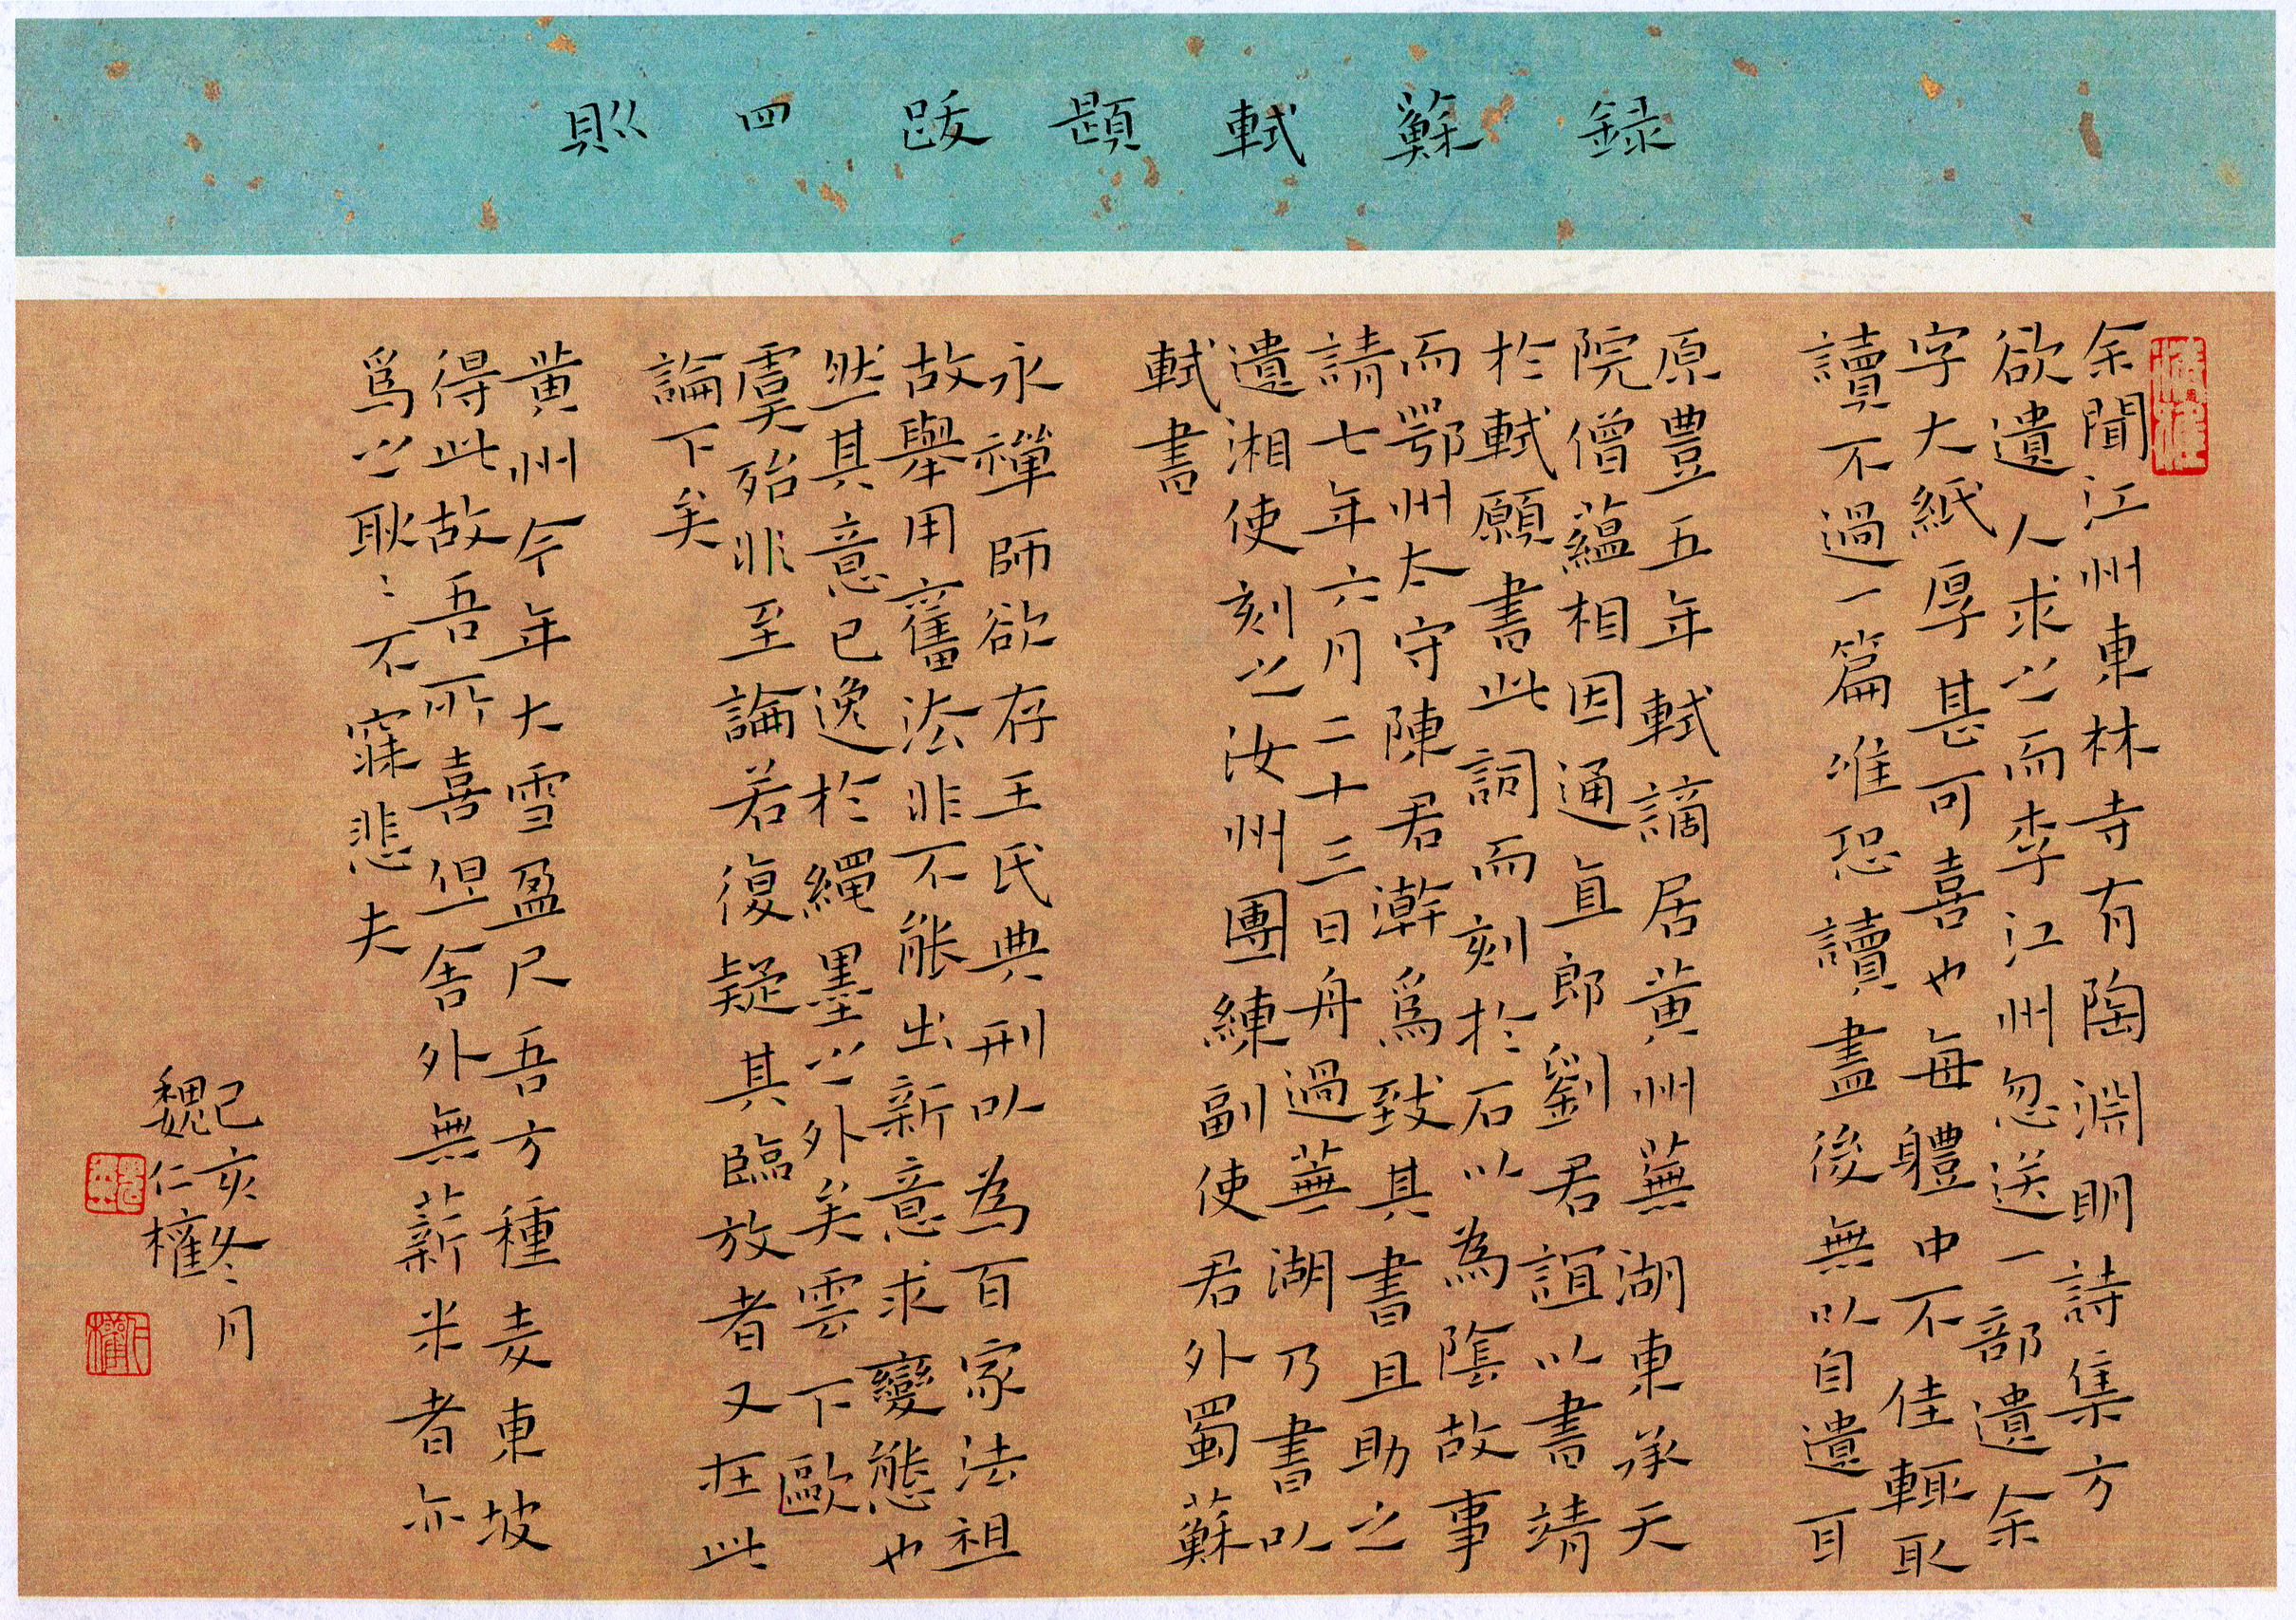 録蘇軾題跋四則
余聞江州東林寺有陶淵明詩集方
欲遣人求之而李江州忽送一部遺余
字大紙厚甚可喜也每體中不佳輒取
讀不過一篇唯恐讀盡後無以自遣耳
原豐五年軾謫居黃州蕪湖東承天
院僧蘊相因通直郎劉君誼以書請
於軾願書此詞而刻於石以為陰故事
而鄂州太守陳君瀚爲致其書且助之
請七年六月二十三日舟過蕪湖乃書以
遺湘使刻之汝州團練副使君外蜀蘇
軾書
永禪師欲存王氏典刑以為百家法祖
故舉用舊法非不能出新意求變態也
然其意已逸於繩墨之外矣雲下歐
虞殆非至論若復疑其臨放者又在此
論下矣
黃州今年大雪盈尺吾方種麦東坡
得此故吾所喜但舍外無薪米者亦
爲之耿〻不寐悲夫
己亥冬月
魏仁權